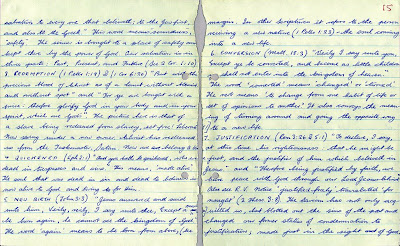 salvation to every one that believeth; to the Jew first,
and also to the Greek". This word means soundness,
safety. The sense is brought to a place of safety and
kept there by the power of God. Our salvation is in
three parts: Past, Present, and Future (See 2 Cor. 1.10)
3 REDEMPTION (1 Peter 1.19) & (1 Cor 6.20) "But with the
precious blood of Christ as of a lamb without blemish
and without spot" and "For ye are bought with a
price: therefore glorify God in your body and in your
spirit, which are God's". The picture here is that of
a slave being redeemed from slavery, set free;
Now owning under a new owner,
us from the Taskmaster, Satan. Now we belong to
4 QUICKENED (Eph 2.1) "And you hath he quickened, who were
dead in trespasses and sins". This means, "made alive".
The soul that was dead in sin and dead to
now alive to God and living to/for Him.
5 NEW BIRTH (John 3.3) "Jesus answered and said
unto him, Verily, verily, I say unto thee, Except a
man be born again, he cannot see the kingdom of God.
The word 'again' means to be born from above, (See
15
margin). In other Scriptures it refers to the person
receiving a divine nature (1 Peter 1.23) - the soul coming
into a new life.
6 CONVERSION (Matt. 18.3) "Verily I say unto you,
Except ye be converted, and become as little children
shall not enter into the kingdom of heaven".
The word 'converted' means 'changed' or 'altered'.
It not means to change from one belief or
set of opinions to another. It also conveys the mean-
ing of turning around and going the opposite way
to a new life.
7 JUSTIFICATION (Rom 3:26 & 5.1) "To declare, I say,
at this time his righteousness: that he might be
just, and the justifier of him which believeth in
Jesus" and "Therefore being justified by faith, we
have peace with God through our Lord Jesus Christ"
Also see R.V. Notice 'justified freely
(2 Thess 3.8). The Saviour has not only
us, but blotted out the sins of the past and
changed us from state of condemnation to
justification, made just in the sight of God.